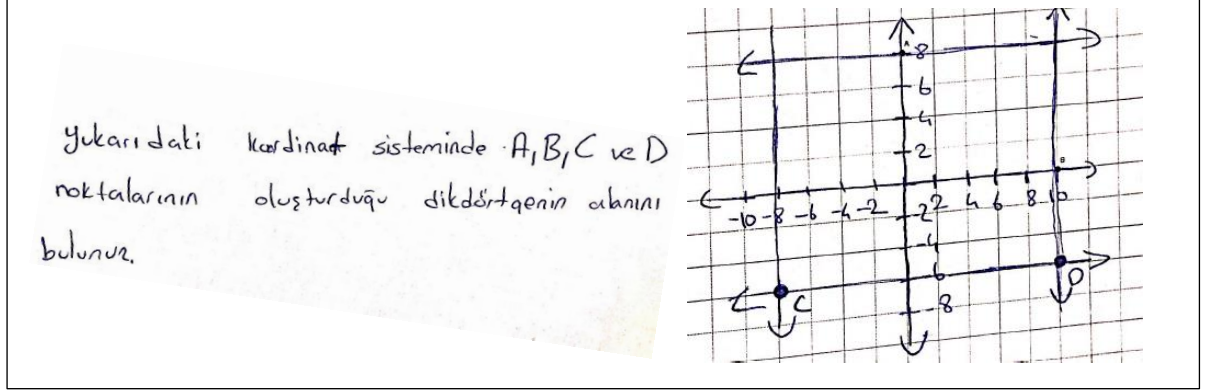 Yukarıdaki kordinat sisteminde A, B, C ve D
noktalarının oluşturduğu dikdörtgenin alanını
bulunuz.
8
6
4
2
-10 -8 -6 -4 -2 2 4 6 8 10
-2
-4
6
-8
C
D